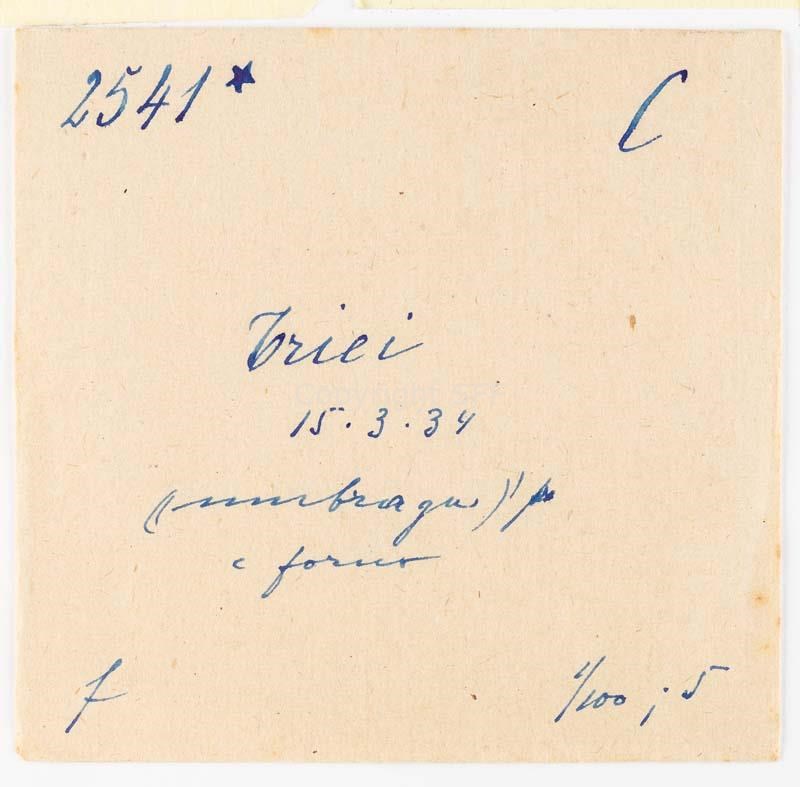 2541* C
Triei
15.3.34
(umbragu)
c forno
f 1/100 ; 5